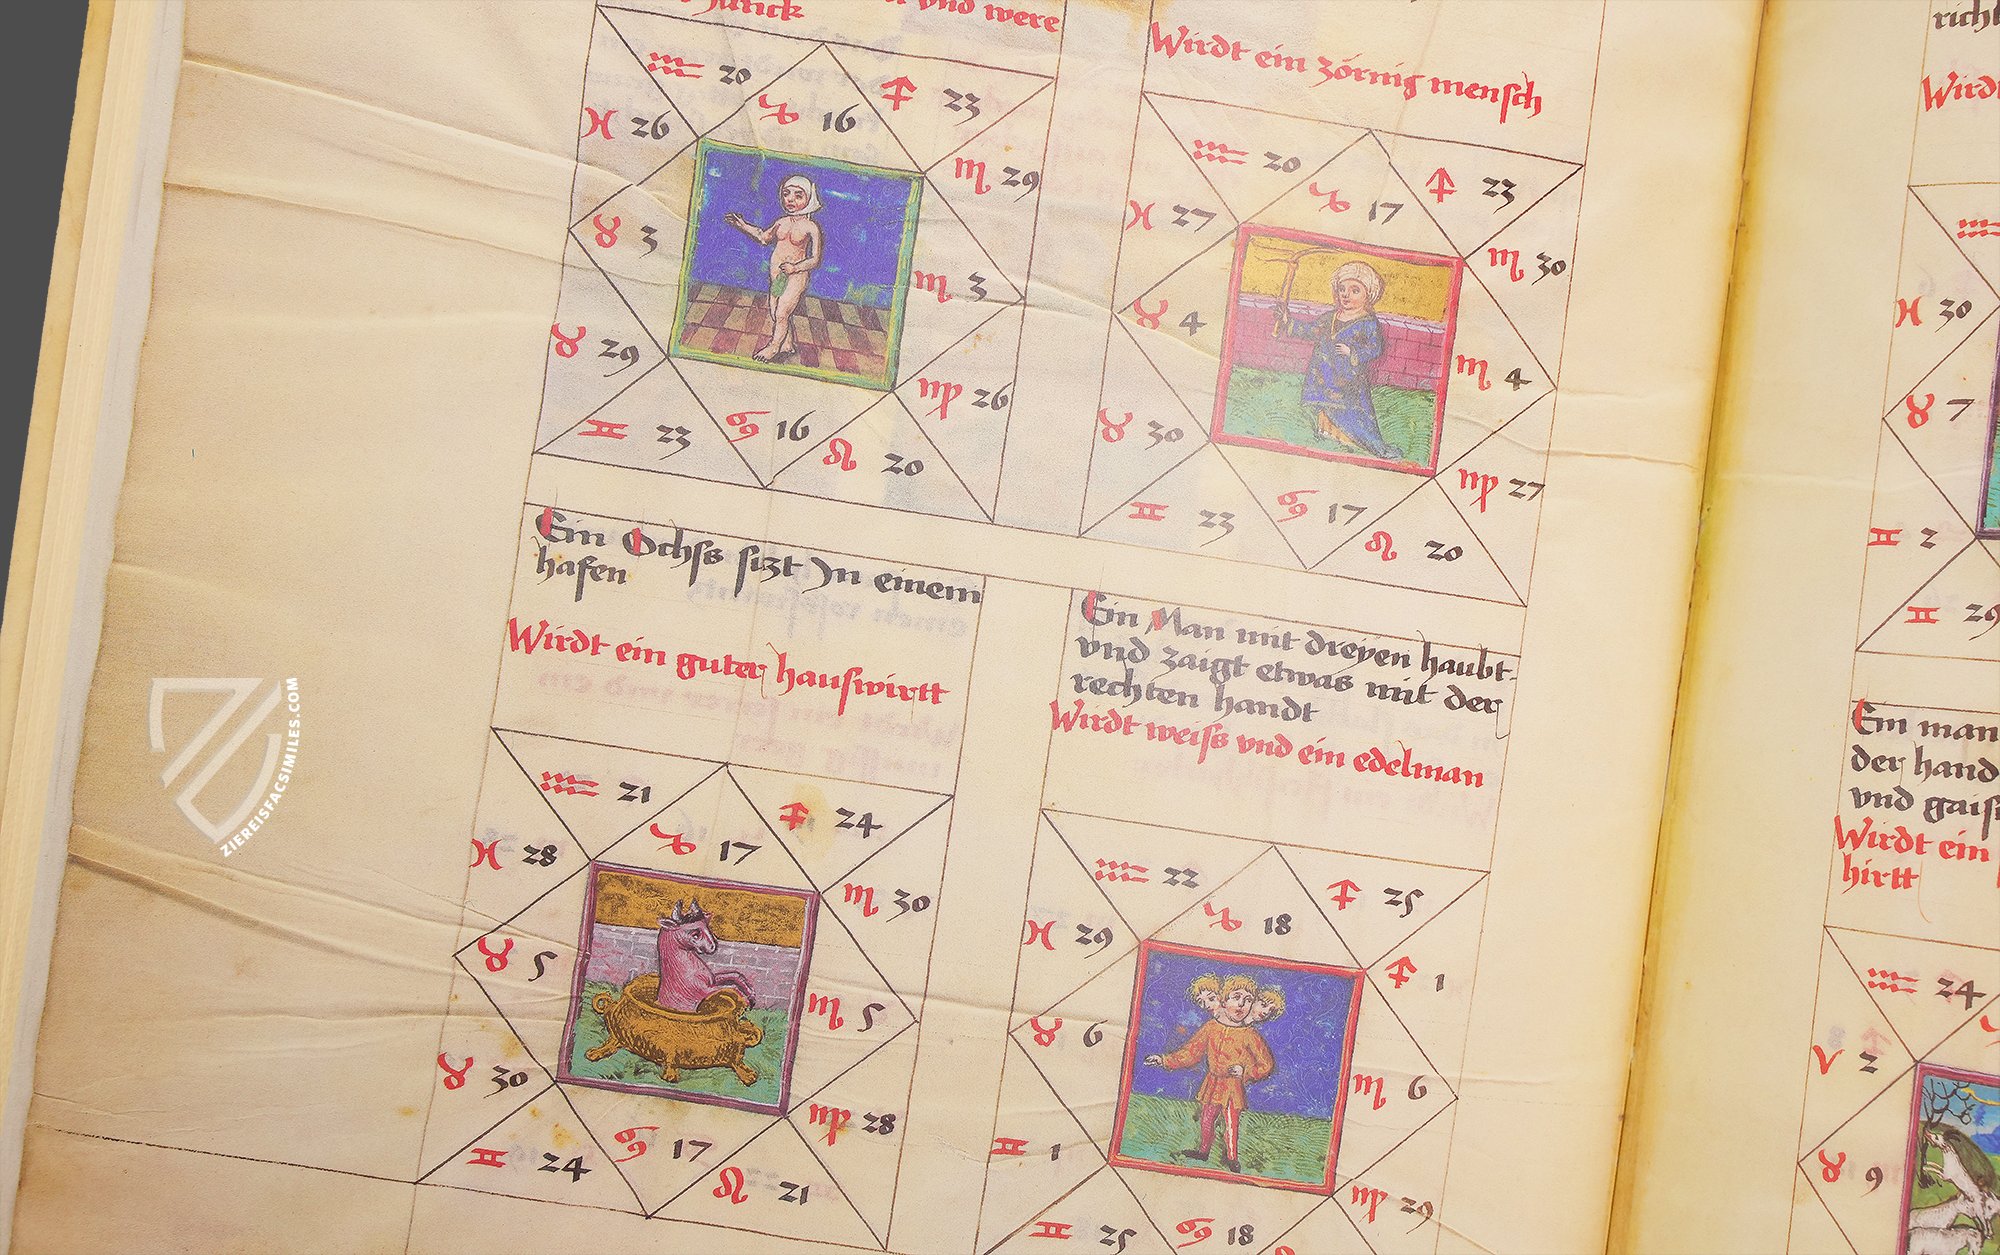 vnd were
Wirdt ein zörnig mensch
♒ 20
♑ 16
♐ 23
♓ 26
♏ 29
♉ 3
♏ 3
♉ 29
♍ 26
♊ 23
♋ 16
♌ 20
♒ 20
♑ 17
♐ 23
♓ 27
♏ 30
♉ 4
♏ 4
♉ 30
♍ 27
♊ 23
♋ 17
♌ 20
Ein Ochss sizt In einem
hafen
Wirdt ein guter hauswirtt
♒ 21
♑ 17
♐ 24
♓ 28
♏ 30
♉ 5
♏ 5
♉ 30
♍ 28
♊ 24
♋ 17
♌ 21
Ein Man mit dreyen haubt
vnd zaigt etwas mit der
rechten handt
Wirdt weiss vnd ein edelman
♒ 22
♑ 18
♐ 25
♓ 29
♐ 1
♉ 6
♏ 6
♊ 1
♍ 29
♊ 25
♋ 18
richt
Wirdt
♓ 30
♉ 7
♊ 2
♊ 29
Ein man
der hand
vnd gais
Wirdt ein
hirtt
♒ 24
♈ 2
♉ 9
ZIEREISFACSIMILES.COM